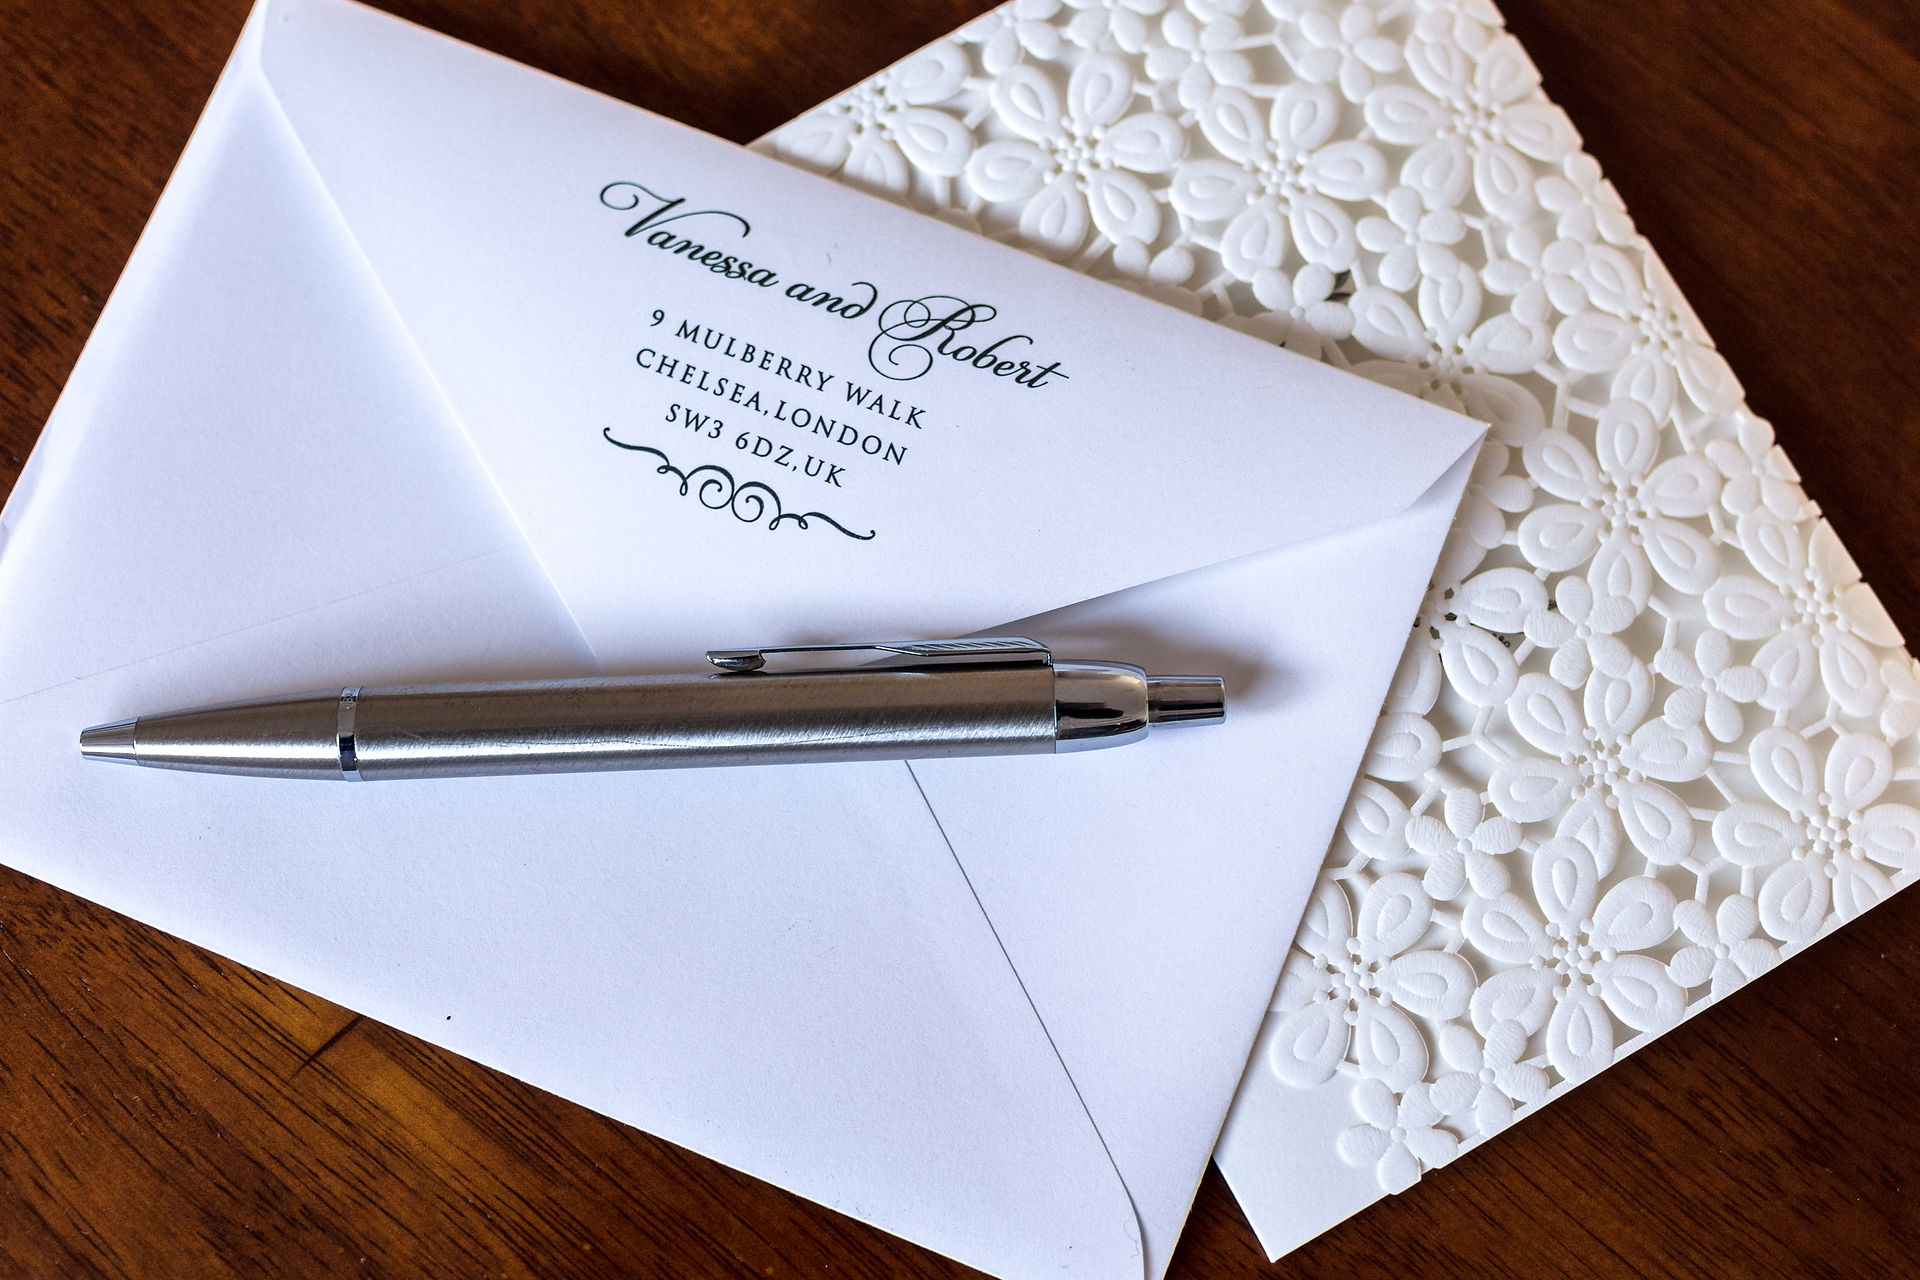 Vanessa and Robert
9 MULBERRY WALK
CHELSEA, LONDON
SW3 6DZ, UK